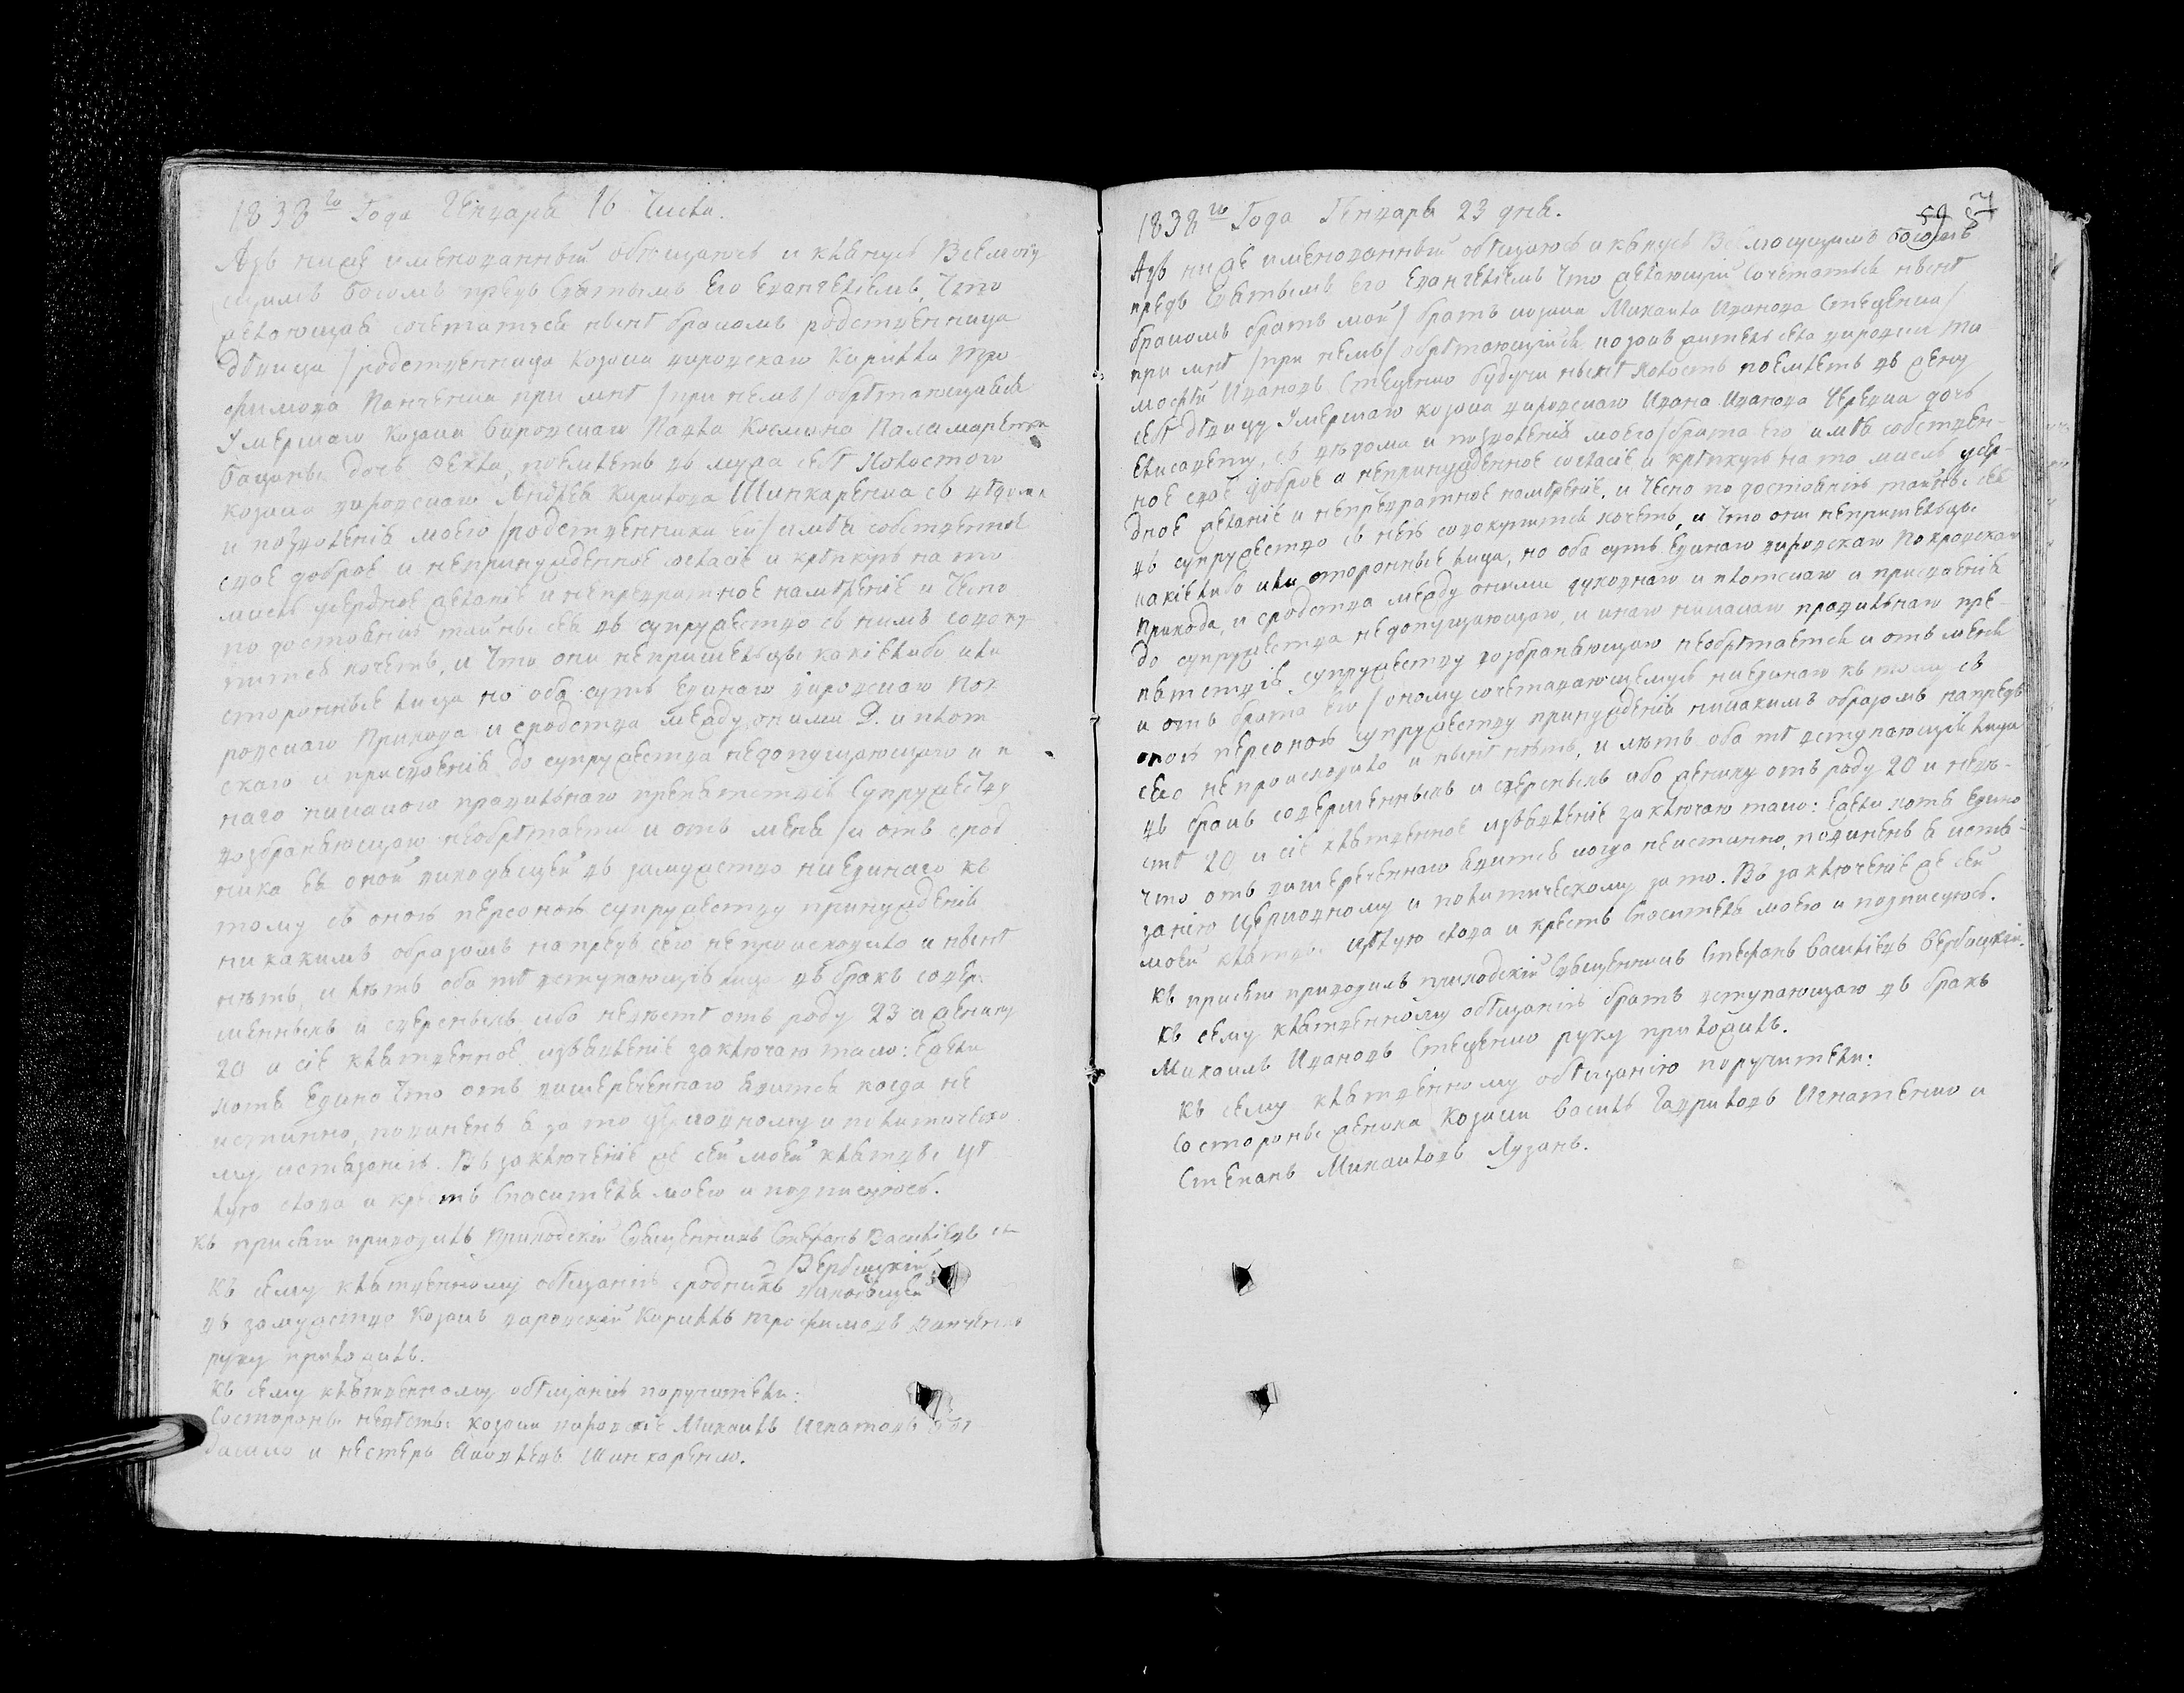 1838го Года Генваря 16 Числа.
Азъ ниже именованный обѣщаюсь и клянусь Всемогу
щимъ Богомъ предъ Святымъ Его Евангелїемъ, Что
желающая сочетатися нынѣ бракомъ родственница
дѣвица / родственница Козака Кирилла Тро
фимова Панченка при мнѣ / при немъ / обрѣтающаяся
Умершаго Козака Павла Космина Паламаренка
дочь Фекла, поемлетъ въ мужа себѣ Холостого
козака Андрея Кирилова Шинкаренка съ вѣдома
и позволенія моего / родственника ей / имѣя собственное
свое доброе и непринужденное согласїе и крѣпкую на то
мысль усердное желанїе и непревратное намѣренїе и Чесно
по достоянїю тайны сея въ супружество съ нимъ совоку-
питься хочетъ, и Что они непришельцы какїелибо или
сторонные лица но оба суть единаго Пок
ровскаго Прихода и сродства между оними Д. и плот
скаго и присвоенїя до супружества недопущающаго и и
наго никакого правильнаго препятствїя Супружеству
возбраняющаго необрѣтается и отъ мене / и отъ срод
ника ея оной выходящей въ замужество ниединаго къ
тому съ оною персоною супружеству принужденїя
никакимъ образомъ напредъ сего непроисходило и нынѣ
нѣтъ, и лѣтъ оба тѣ вступающїя лица въ бракъ совер-
шенныхъ и сверсныхъ ибо невѣстѣ отъ роду 23 а жениху
20 и сїе клятвенное изъявленїе заключаю тако: Ежели
хотя Едино Что отъ вишереченнаго явится когда не
истинно, повиненъ я за то церковному и политическо
му истязанїю. Въ заключенїе же сей моей клятвы цѣ
лую слова и крестъ Спасителя моего и подписуюсь.
Къ присягѣ приводилъ Приходскїй Священникъ Стефанъ Василїевъ
Вербицкїй
Къ сему клятвенному обѣщанїю сродникъ выходящей
въ замужество Козакъ Кириллъ Трофимовъ Панченко
руку приложилъ.
Къ сему клятвенному обѣщанїю поручители:
Состороны невѣсты козаки Михаилъ Игнатовъ
и Нестеръ Яковлевъ Шинкаренко.
1838го Года Генваря 23 дня.
59 57
Азъ ниже именованный обѣщаюсь и клянусь Всемогущимъ Богомъ
предъ Святымъ Его Евангелїемъ Что желающїй Сочетаться нынѣ
бракомъ братъ мой / братъ козака Михаила Иванова Стеценка /
при мнѣ / при немъ / обрѣтающїйся козакъ житель села Ти
мофей Ивановъ Стеценко будучи нынѣ Холостъ поемлетъ въ жену
себѣ дѣвицу Умершаго козака Ивана Иванова дочь
Елисавету, съ вѣдома и позволенїя моего / брата его имѣя собствен-
ное свое доброе и непринужденное согласїе, и крѣпкую на то мысль усер-
дное желанїе и непревратное намѣренїе, и Чесно по достоянїю тайны сея
въ супружество съ нею совокупится хочетъ, и Что они непришельцы
какїелибо или сторонные лица, но оба суть Единаго Покровскаго
Прихода, и сродства между оними духовнаго и плотскаго и присвоенїя
до супружества недопущающаго, и инаго никакаго правильнаго пре-
пятствїя супружеству возбраняющаго необрѣтается и отъ мене
и отъ брата его / оному сочетавающемуся ниединаго къ тому съ
оною персоною супружеству принужденїя никакимъ образомъ напредъ
сего непроисходило и нынѣ нѣтъ, и лѣтъ оба тѣ вступающїя лица
въ бракъ совершенныхъ и сверсныхъ ибо жениху отъ роду 20 и невѣ-
стѣ 20 и сїе клятвенное изъявленїе заключаю тако: Ежели хотя Едино
что отъ вишереченнаго явится когда неистинно, повиненъ я истя-
занїю Церковному и политическому за то. Въ заключенїе же сей
моей клятвы цѣлую слова и крестъ Спасителя моего и подписуюсь.
Къ присягѣ приводилъ приходскїй Священникъ Стефанъ Василїевъ Вербицкїй.
Къ сему клятвенному обѣщанїю братъ вступающаго въ бракъ
Михаилъ Ивановъ Стеценко руку приложилъ.
Къ сему клятвенному обѣщанїю поручители:
Состороны жениха Козаки Василь Гавриловъ Игнатенко и
Степанъ Михаиловъ Лузанъ.